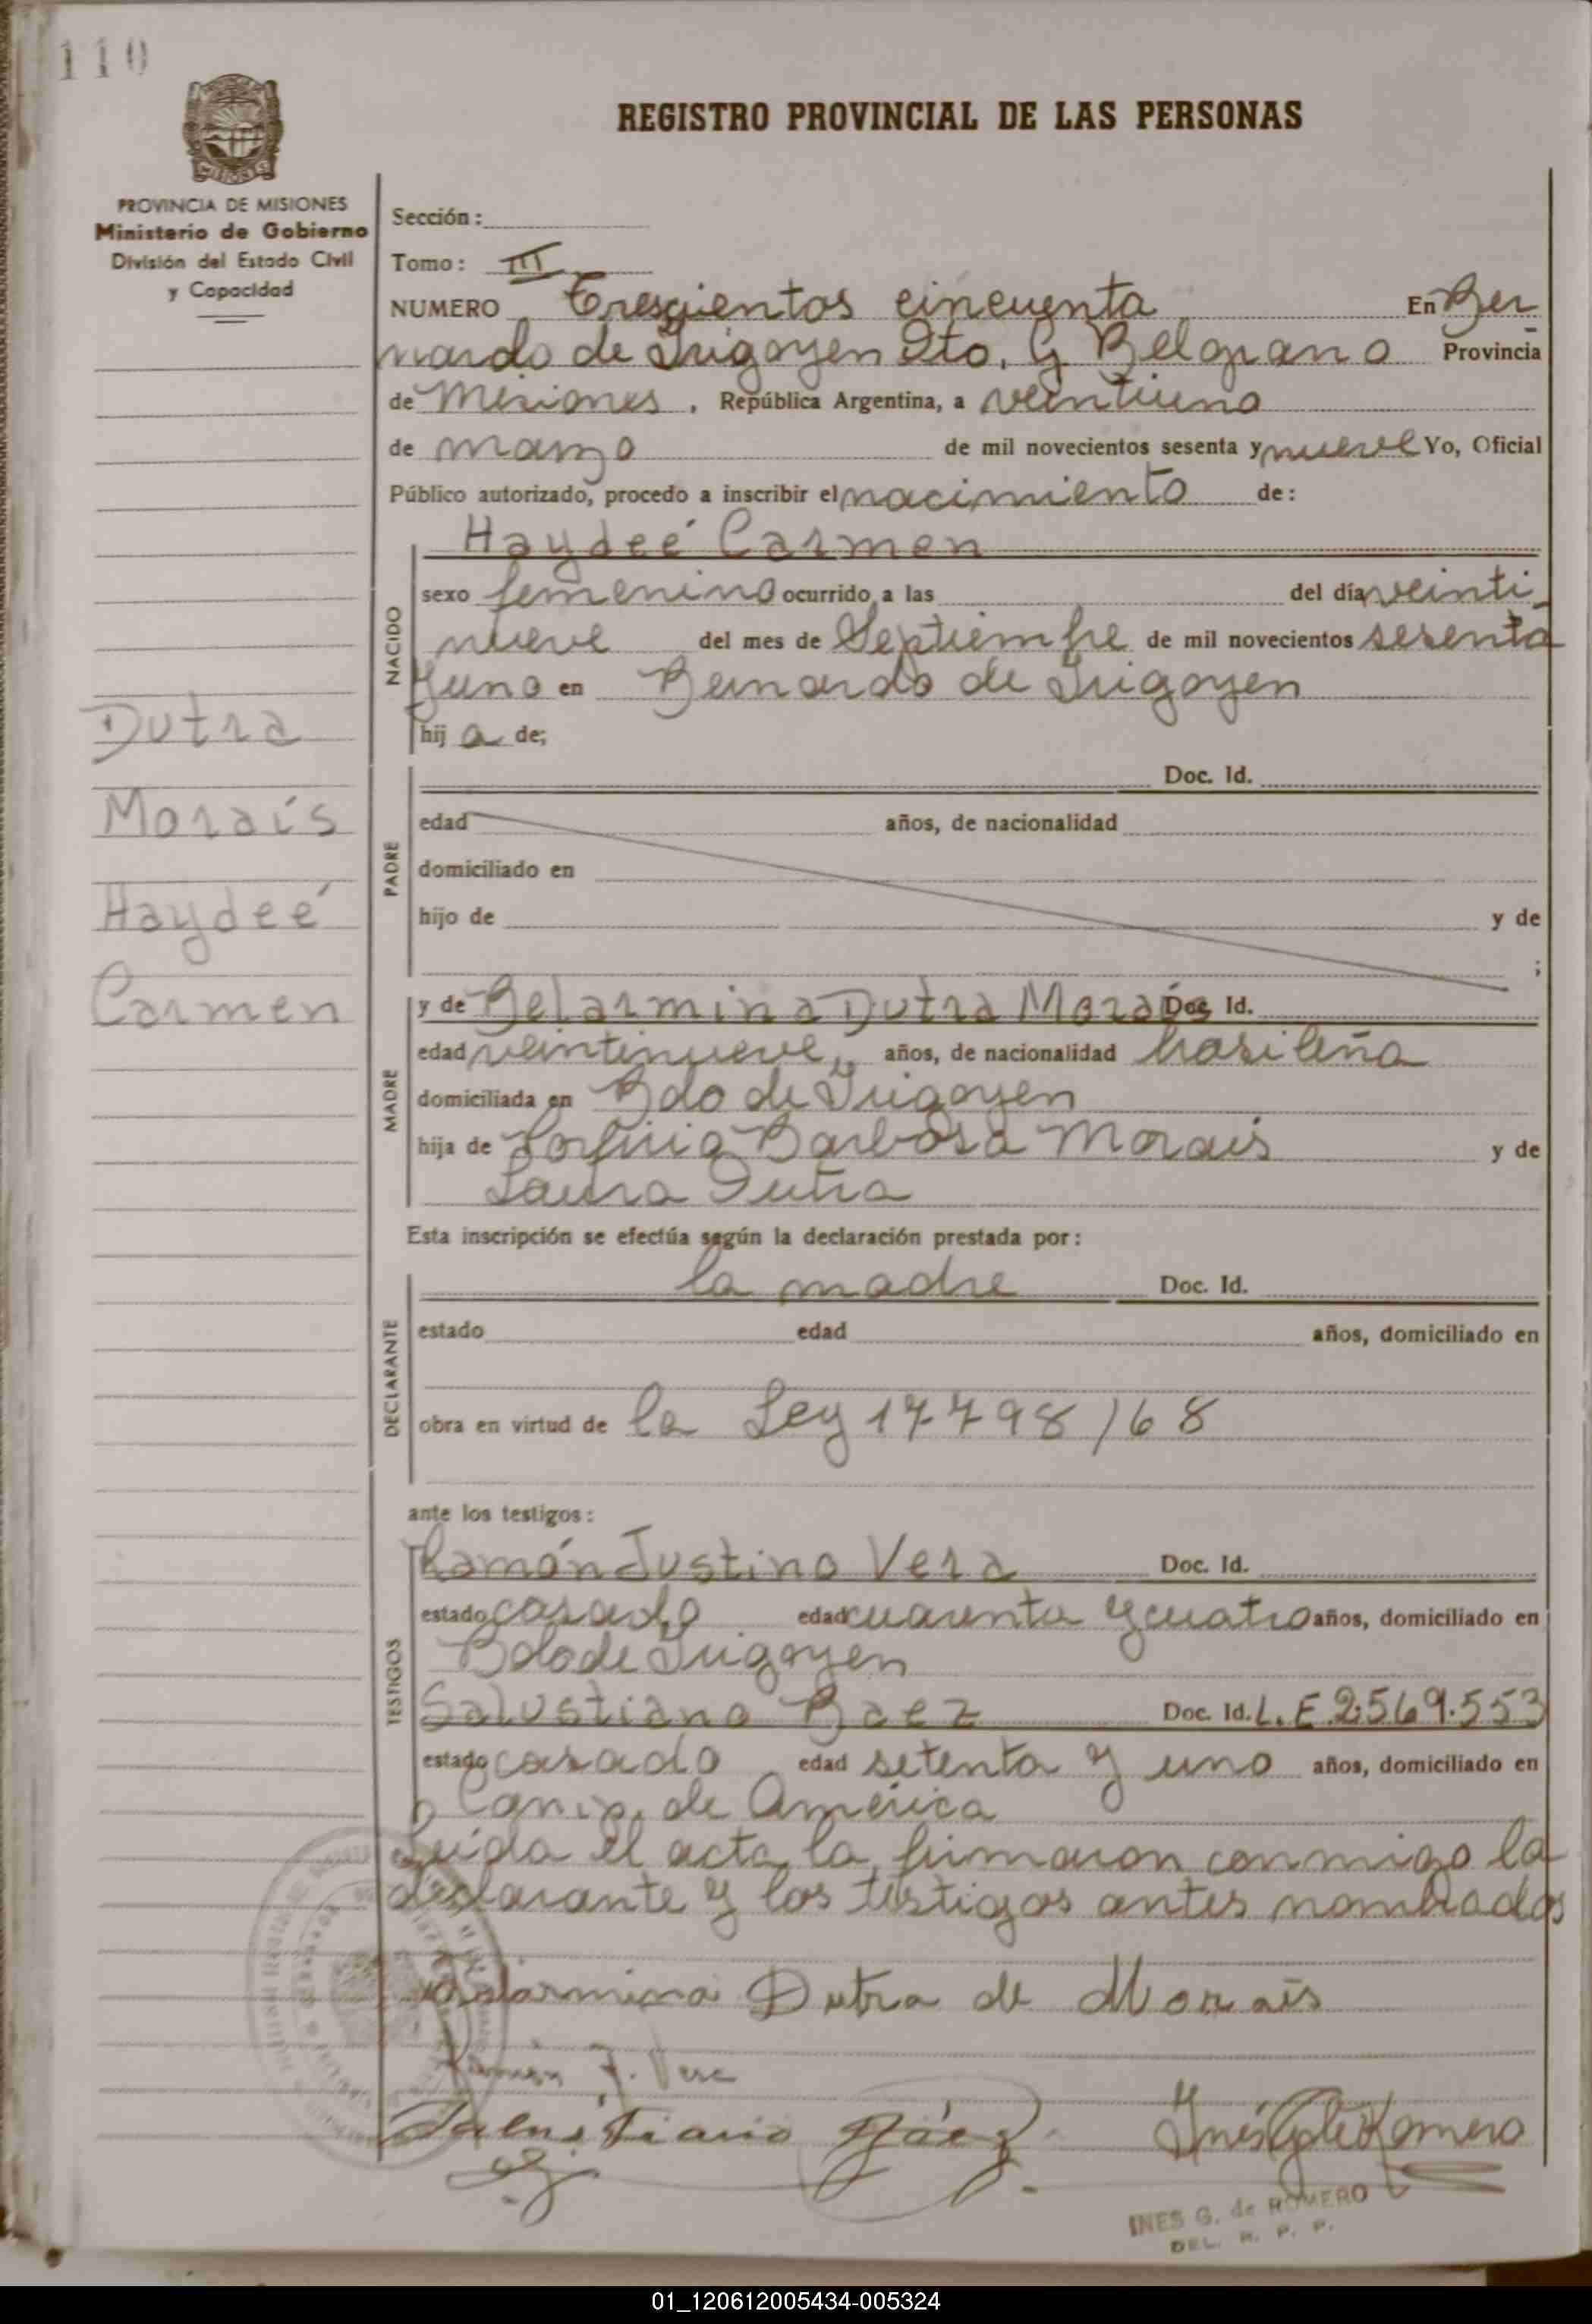 110
REGISTRO PROVINCIAL DE LAS PERSONAS
PROVINCIA DE MISIONES
Ministerio de Gobierno
División del Estado Civil
y Capacidad
Sección:
Tomo: III
NUMERO Trescientos cincuenta En Ber
nardo de Irigoyen Dto. G Belgrano Provincia
de Misiones, República Argentina, a veintiuno
de marzo de mil novecientos sesenta y nueve Yo, Oficial
Público autorizado, procedo a inscribir el nacimiento de:
Haydeé Carmen
NACIDO
sexo femenino ocurrido a las del día veinti
nueve del mes de Septiembre de mil novecientos sesenta
y uno en Bernardo de Irigoyen
hija de;
Dutra
Morais
Haydeé
Carmen
PADRE
Doc. Id.
edad años, de nacionalidad
domiciliado en
hijo de y de
;
MADRE
y de Belarmina Dutra Morais Doc. Id.
edad veintinueve, años, de nacionalidad brasileña
domiciliada en Bdo de Irigoyen
hija de Barbosa Morais y de
Laura Dutra
Esta inscripción se efectúa según la declaración prestada por:
DECLARANTE
la madre Doc. Id.
estado edad años, domiciliado en
obra en virtud de la Ley 17798/68
ante los testigos:
TESTIGOS
Ramón Justino Vera Doc. Id.
estado casado edad cuarenta y cuatro años, domiciliado en
Bdo de Irigoyen
Salustiano Baez Doc. Id. L.E 2.569.553
estado casado edad setenta y uno años, domiciliado en
de América
Leida el acta la firmaron conmigo la
declarante y los testigos antes nombrados
Belarmina Dutra de Morais
Ramón J. Vera
Salustiano Báez
Inés G de Romero
INES G. de ROMERO
DEL. R. P. P.
01_120612005434-005324